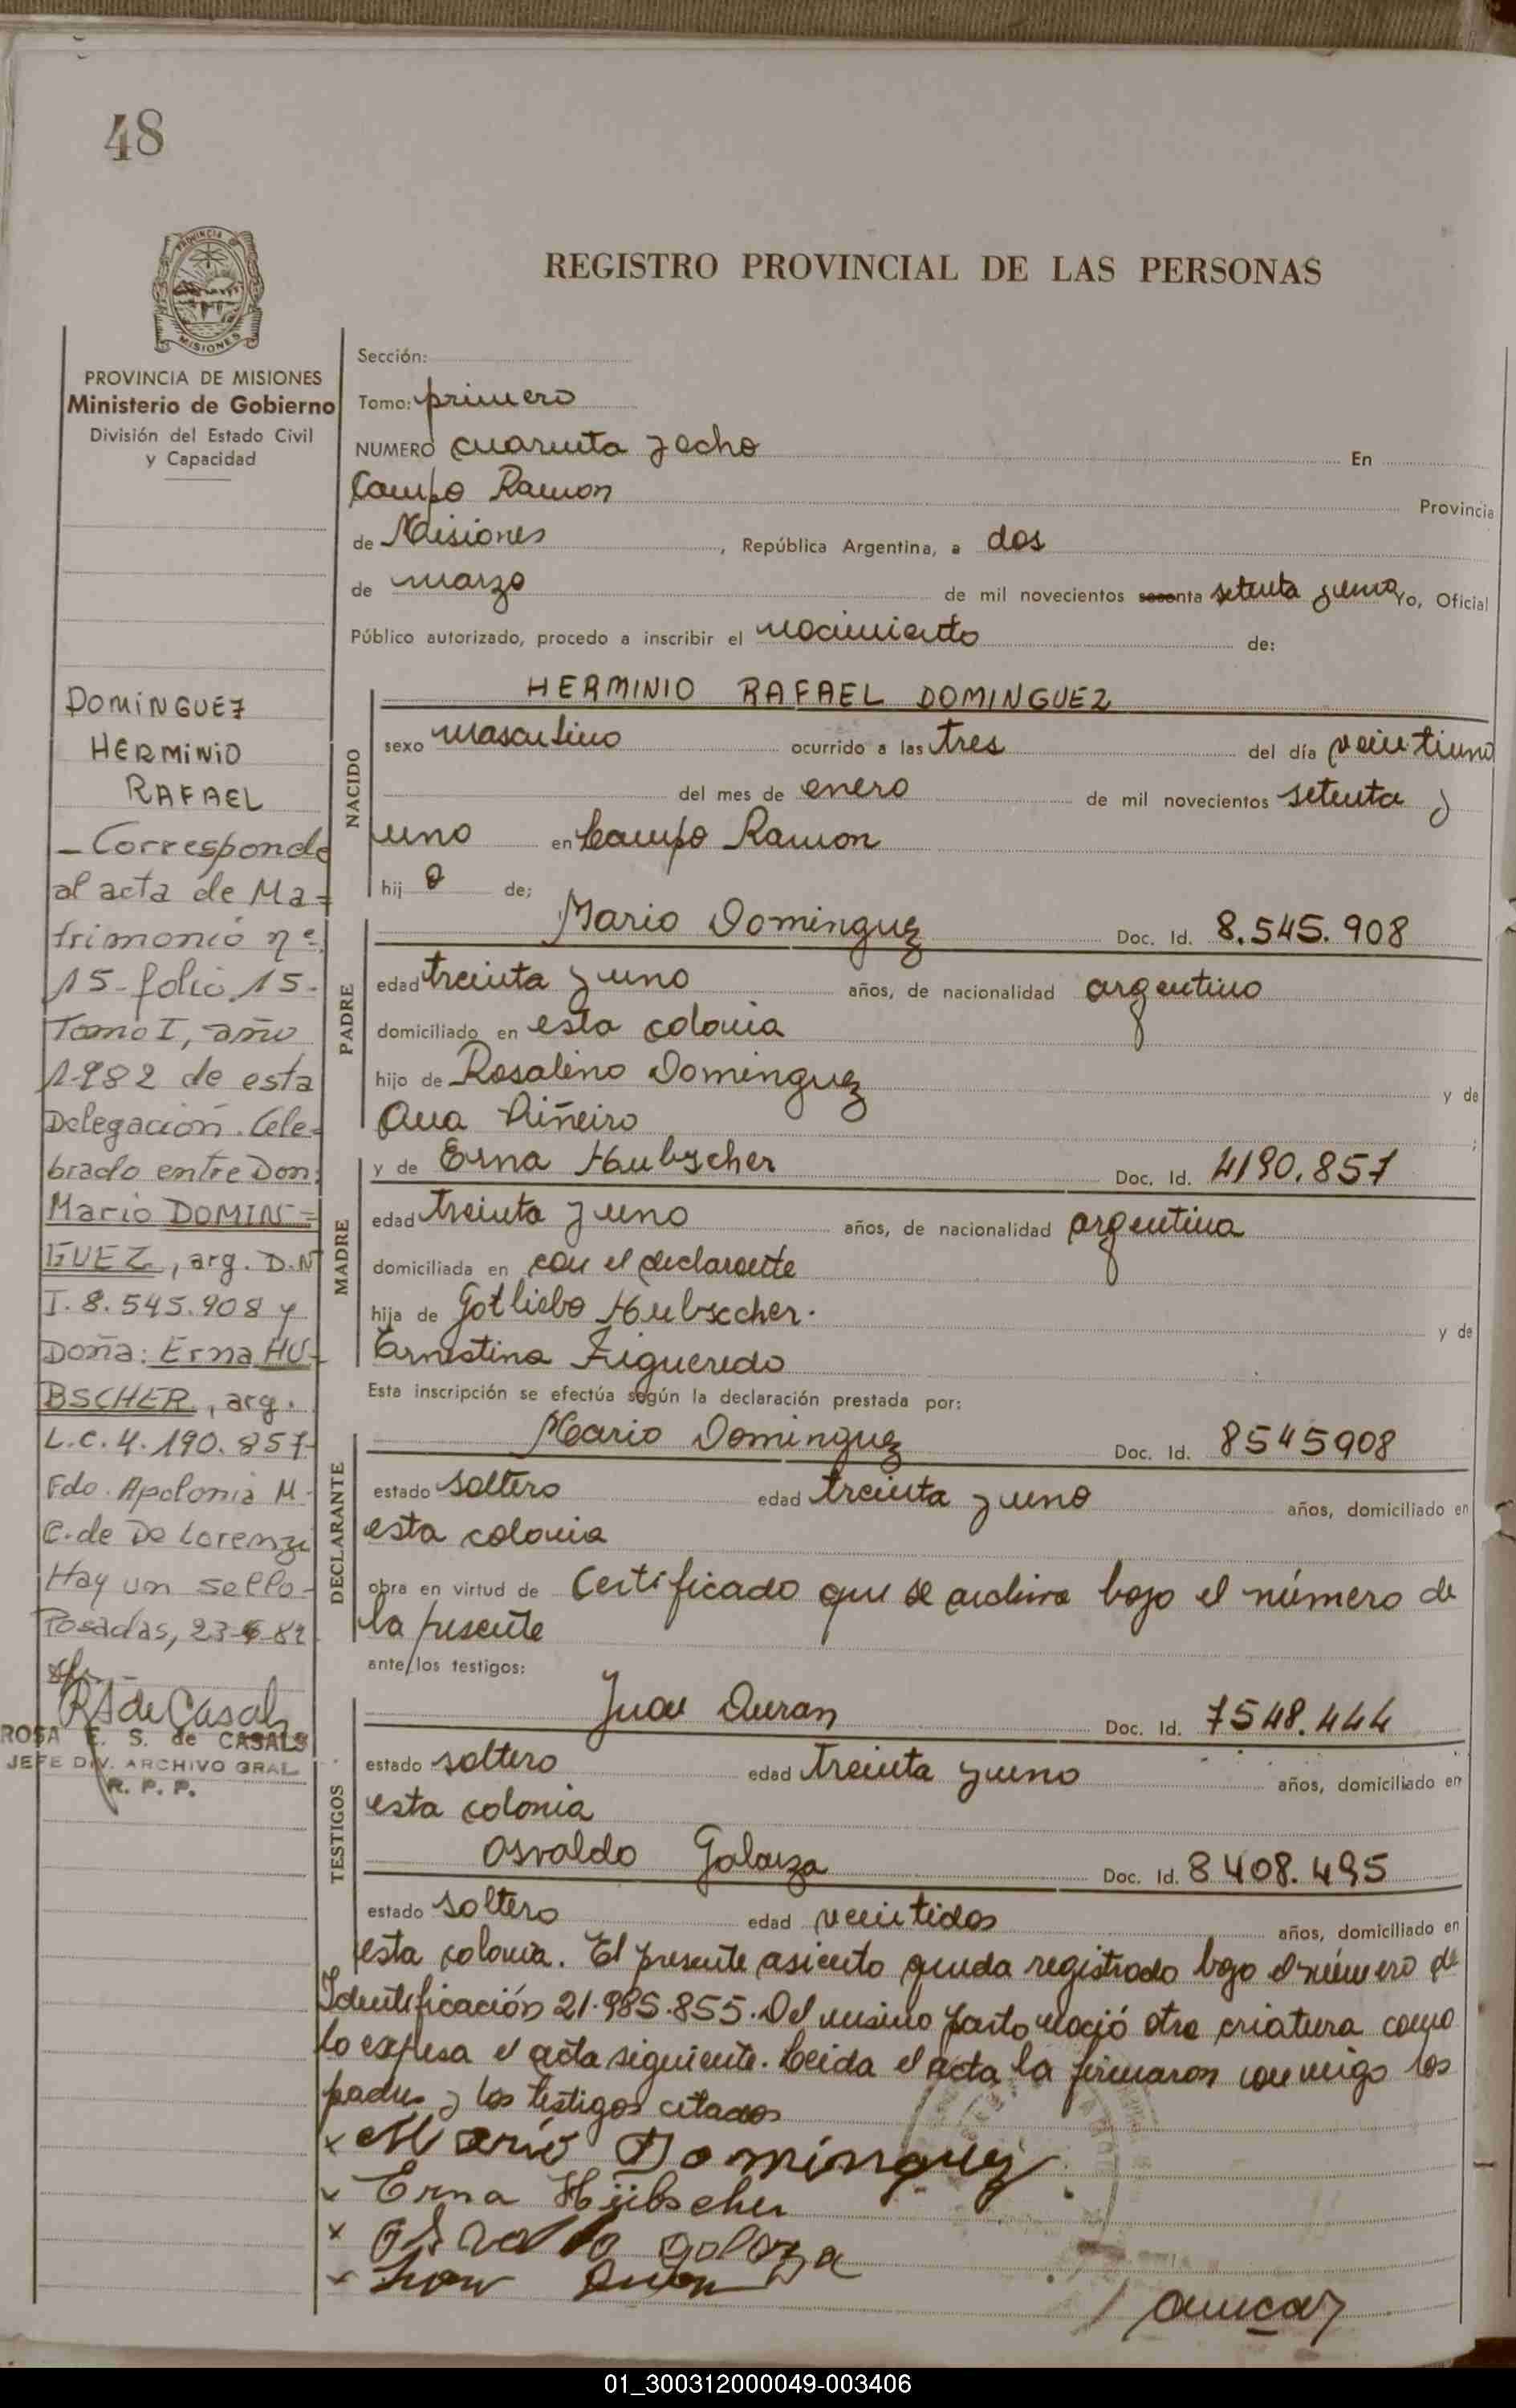 48
PROVINCIA DE
MISIONES
PROVINCIA DE MISIONES
Ministerio de Gobierno
División del Estado Civil
y Capacidad
DOMINGUEZ
HERMINIO
RAFAEL
- Corresponde
al acta de Ma=
trimonio nº
15- folio 15-
Tomo I, año
1982 de esta
Delegación. Cele=
brado entre Don:
Mario DOMIN=
GUEZ, arg. D.N
I. 8.545.908 y
Doña: Erna HU-
BSCHER, arg.
L.C. 4.190.857-
Fdo. Apolonia M.
C. de De Lorenzi
Hay un sello-
Posadas, 23-6-82
RS de Casals
ROSA E. S. de CASALS
JEFE DIV. ARCHIVO GRAL
R. P. P.
REGISTRO PROVINCIAL DE LAS PERSONAS
Sección:
Tomo: primero
NUMERO cuarenta y ocho En
Campo Ramon Provincia
de Misiones, República Argentina, a dos
de marzo de mil novecientos sesenta setenta y uno Yo, Oficial
Público autorizado, procedo a inscribir el nacimiento de:
NACIDO
HERMINIO RAFAEL DOMINGUEZ
sexo masculino ocurrido a las tres del día veintiuno
del mes de enero de mil novecientos setenta y
uno en Campo Ramon
hij o de:
PADRE
Mario Dominguez Doc. Id. 8.545.908
edad treinta y uno años, de nacionalidad argentino
domiciliado en esta colonia
hijo de Rosalino Dominguez y de
Ana Piñeiro ;
MADRE
y de Erna Hubscher Doc. Id. 4190.857
edad treinta y uno años, de nacionalidad argentina
domiciliada en con el declarante
hija de Gotliebo Hubsccher. y de
Ernestina Figueredo
Esta inscripción se efectúa según la declaración prestada por:
DECLARANTE
Mario Dominguez Doc. Id. 8545908
estado soltero edad treinta y uno años, domiciliado en
esta colonia
obra en virtud de Certificado que se archiva bajo el número de
la presente
ante/los testigos:
TESTIGOS
Juan Duran Doc. Id. 7548.444
estado soltero edad treinta y uno años, domiciliado en
esta colonia
Osvaldo Galarza Doc. Id. 8408.495
estado soltero edad veintidos años, domiciliado en
esta colonia. El presente asiento queda registrado bajo el número de
Identificación 21.985.855. Del mismo parto nació otra criatura como
lo expresa el acta siguiente. Leida el acta la firmaron conmigo los
padres y los testigos citados
x Mario Dominguez
x Erna Hübscher
x Osvaldo Galarza
x Juan Duran
01_300312000049-003406